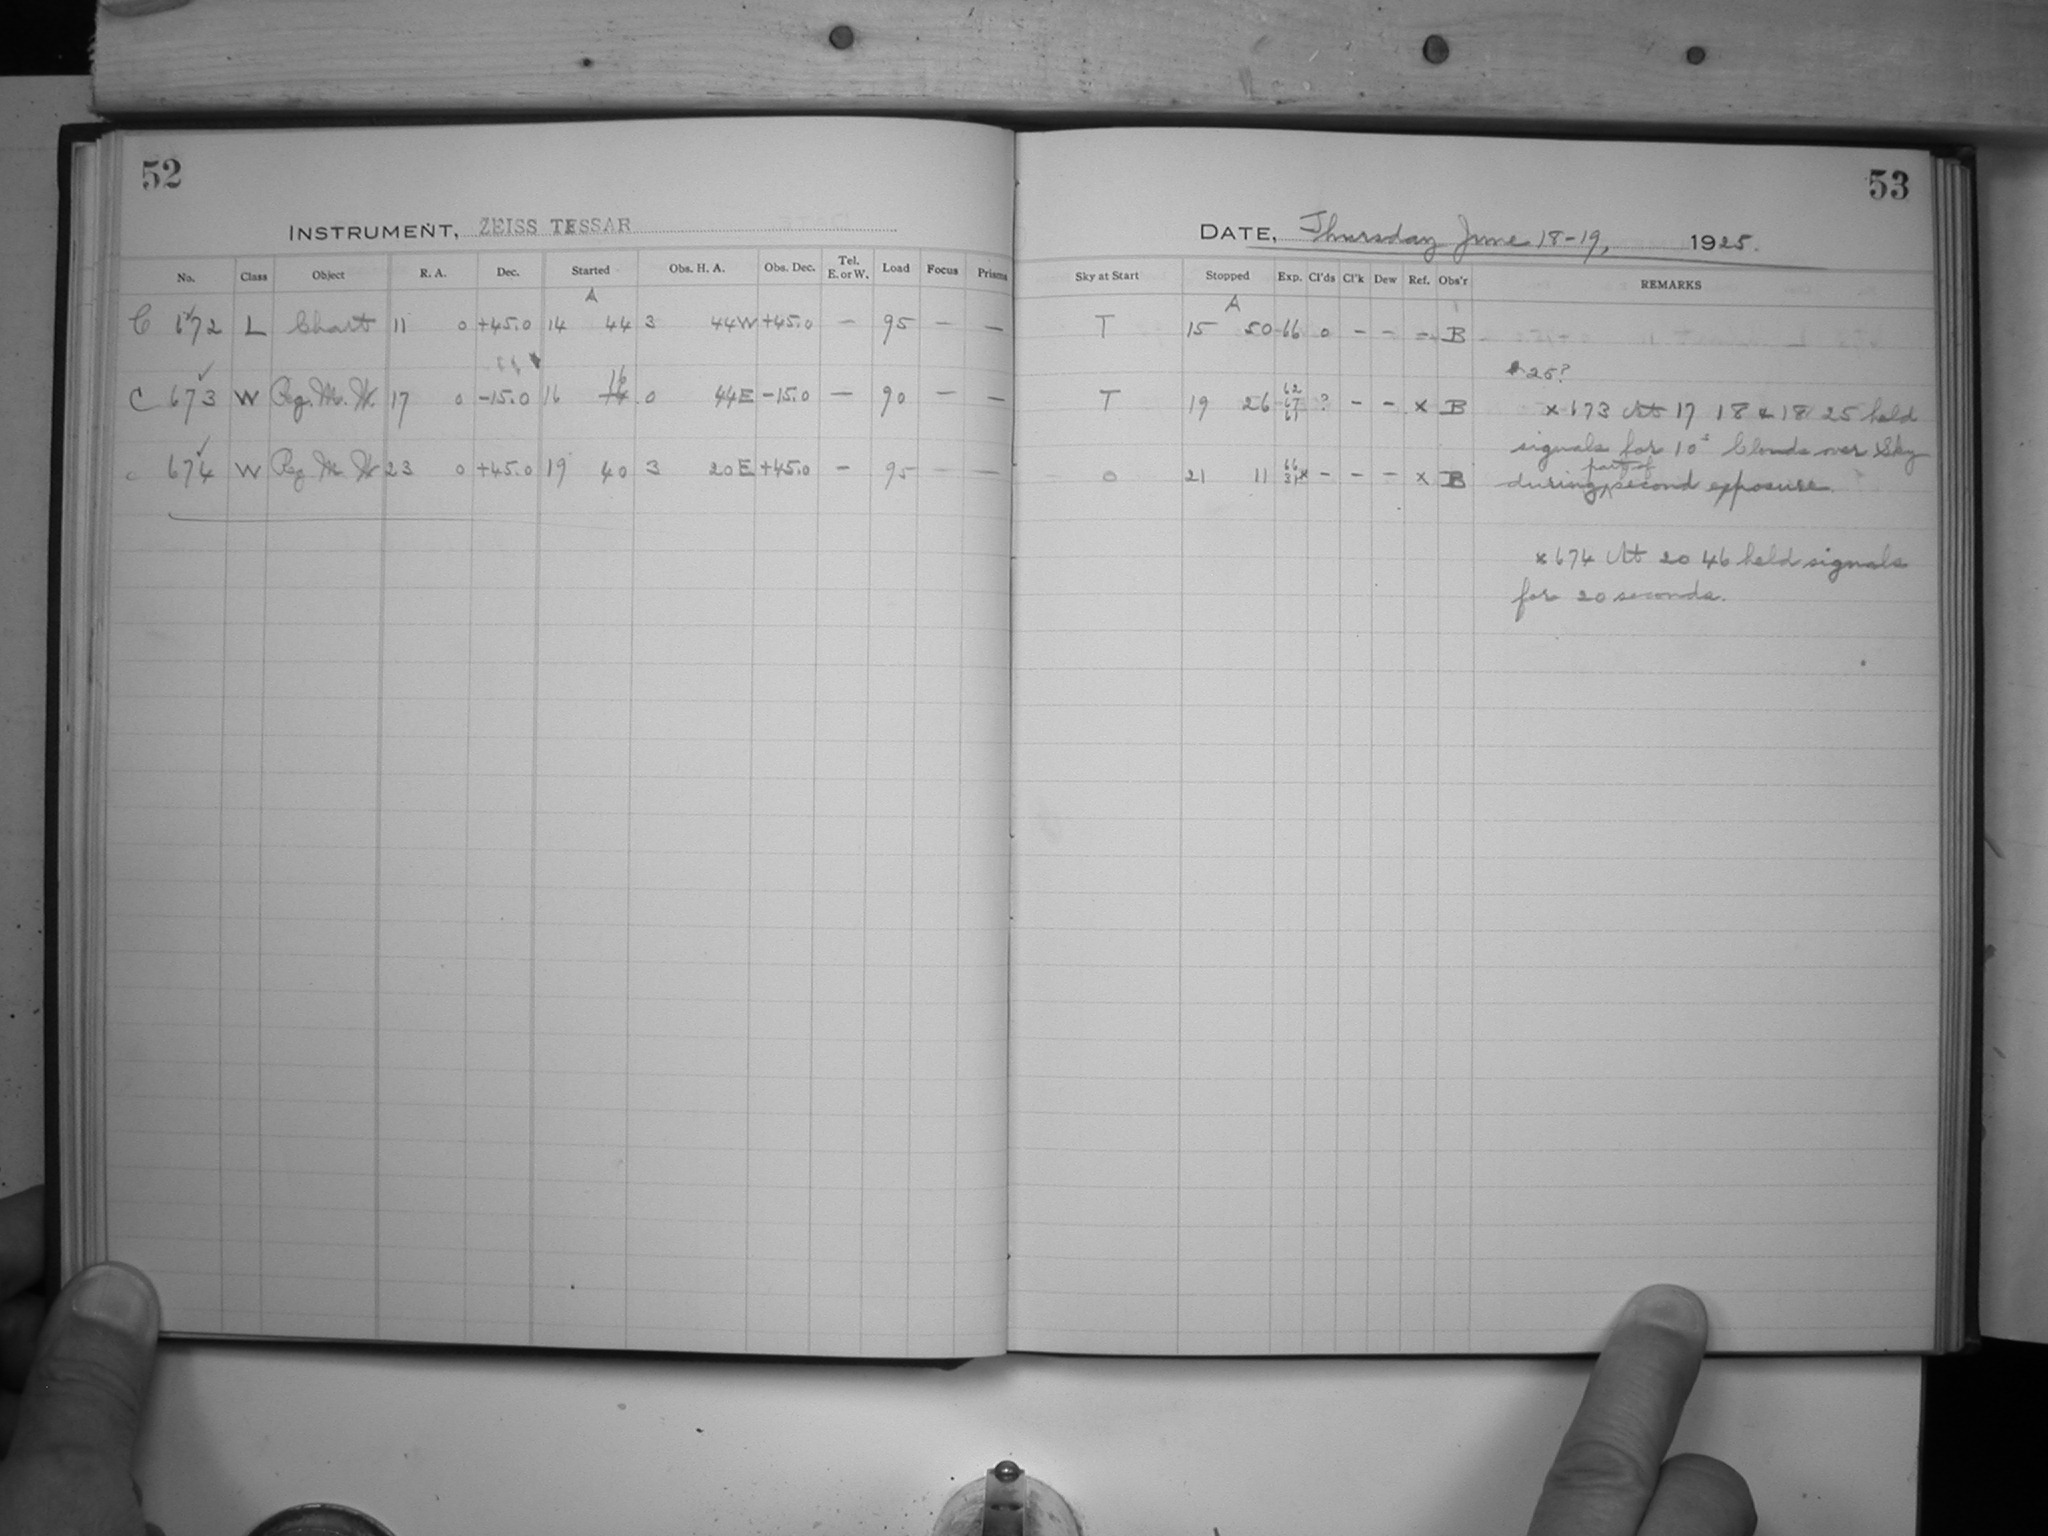 52
INSTRUMENT, ZEISS TESSAR
No. Class Object R. A. Dec. Started Obs. H. A. Obs. Dec. Tel. E. or W. Load Focus Prisms
A
C 672 L Chart 11 0 +45.0 14 44 3 44W +45.0 — 95 — —
16
C 673 W Reg. M. W. 17 0 -15.0 16 14 0 44E -15.0 — 90 — —
c 674 W Reg M W 23 0 +45.0 19 40 3 20E +45.0 - 95 — —
53
DATE, Thursday June 18-19, 1925.
Sky at Start Stopped Exp. Cl'ds Cl'k Dew Ref. Obs'r REMARKS
A
T 15 50 66 0 - - - B
25?
T 19 26 62 67 61 ? - - x B x 673 At 17 18 & 18 25 held
signals for 10s Clouds over Sky
part of
0 21 11 66 31x - - - x B during second exposure.
x 674 At 20 46 held signals
for 20 seconds.